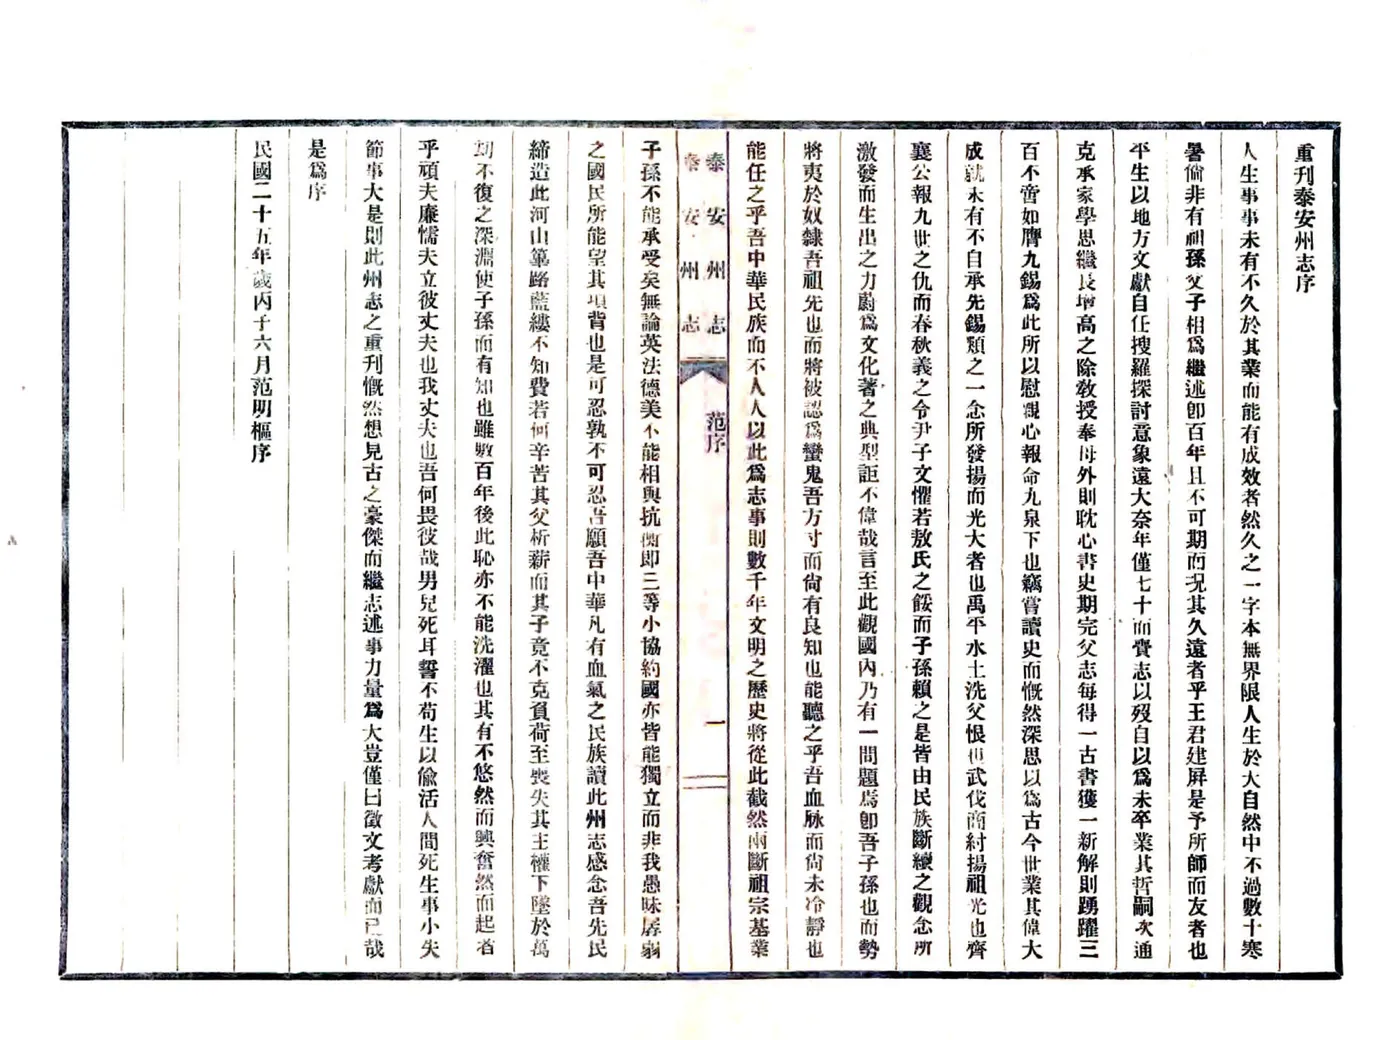 重刋泰安州志序
人生事事未有不久於其業而能有成效者然久之一字本無界限人生於大自然中不過數十寒
暑倘非有祖孫父子相爲繼述卽百年且不可期而况其久遠者乎王君建屏是予所師而友者也
平生以地方文獻自任搜羅探討意象遠大奈年僅七十而賫志以歿自以爲未卒業其哲嗣次通
克承家學思繼長增高之除敎授奉母外則耽心書史期完父志每得一古書獲一新解則踴躍三
百不啻如膺九錫爲此所以慰親心報命九泉下也竊嘗讀史而慨然深思以爲古今世業其偉大
成就未有不自承先錫類之一念所發揚而光大者也禹平水土洗父恨也武伐商紂揚祖光也齊
襄公報九世之仇而春秋義之令尹子文懼若敖氏之餒而子孫賴之是皆由民族斷續之觀念所
激發而生出之力蔚爲文化著之典型詎不偉哉言至此觀國內乃有一問題焉卽吾子孫也而勢
將夷於奴隸吾祖先也而將被認爲蠻鬼吾方寸而尙有良知也能聽之乎吾血脉而尙未冷靜也
能任之乎吾中華民族而不人人以此爲志事則數千年文明之歷史將從此截然兩斷祖宗基業
泰安州志
泰安州志 范序 一
子孫不能承受矣無論英法德美不能相與抗衡即三等小協約國亦皆能獨立而非我愚昧孱弱
之國民所能望其項背也是可忍孰不可忍吾願吾中華凡有血氣之民族讀此州志感念吾先民
締造此河山篳路藍縷不知費若何辛苦其父析薪而其子竟不克負荷至喪失其主權下墜於萬
劫不復之深淵使子孫而有知也雖數百年後此恥亦不能洗濯也其有不悠然而興奮然而起者
乎頑夫廉懦夫立彼丈夫也我丈夫也吾何畏彼哉男兒死耳誓不苟生以偸活人間死生事小失
節事大是則此州志之重刋慨然想見古之豪傑而繼志述事力量爲大豈僅曰徵文考獻而已哉
是爲序
民國二十五年歲丙子六月范明樞序